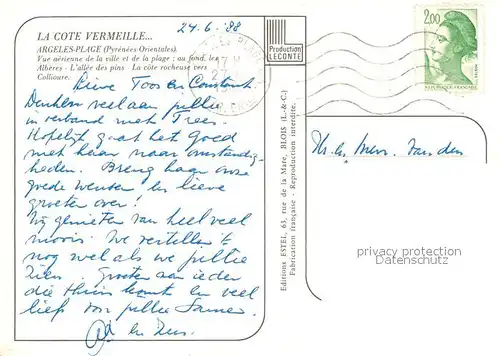 LA COTE VERMEILLE...
ARGELES-PLAGE (Pyrénées-Orientales).
Vue aérienne de la ville et de la plage ; au fond, les
Albères - L'allée des pins La côte rocheuse vers
Collioure.
24-6-'88
Production
LECONTE
2,00
REPUBLIQUE FRANÇAISE
Lieve Toos en Constant
Denken veel aan jullie
in verband met Trees.
Hopelijk gaat het goed
met haar naar omstandig-
heden. Breng haar onze
goede wensen en lieve
groeten over!
Wij genieten van heel veel
moois. We vertellen 't
nog wel als we jullie
zien. Groeten aan ieder
die thuis komt en veel
liefs voor jullie samen.
Ad en
Editions ESTEL, 63, rue de la Mare, BLOIS (L.-&-C.)
Fabrication française - Reproduction interdite.
Mevr. van den
privacy protection
Datenschutz